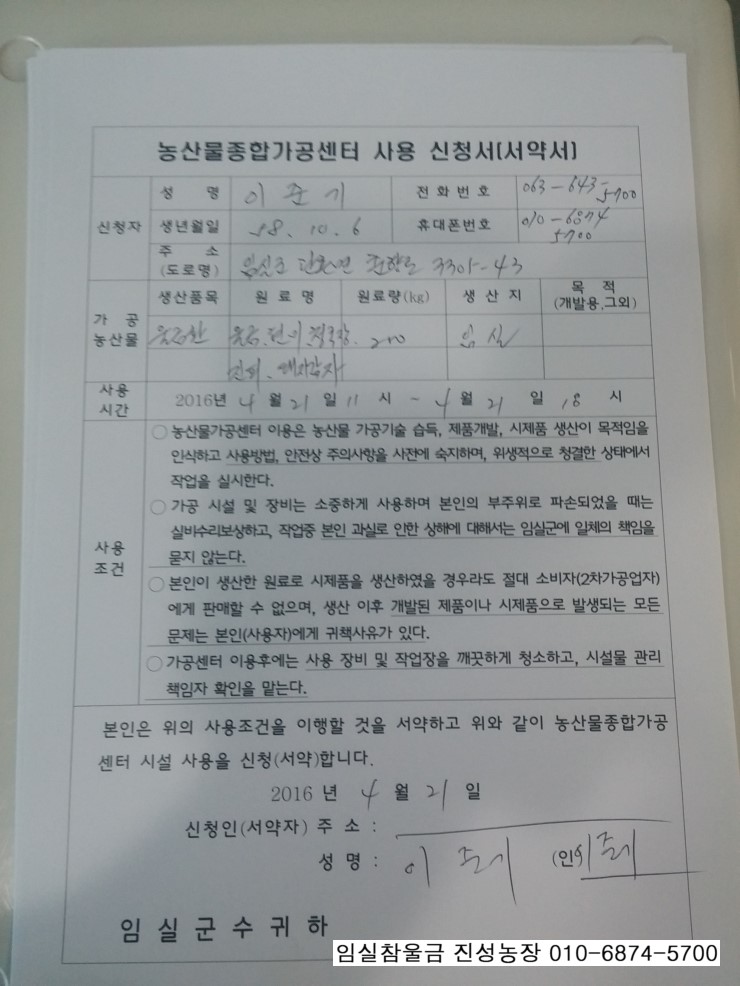 농산물종합가공센터 사용 신청서(서약서)
신청자
성 명 이준기 전화번호 063-643-5700
생년월일 58. 10. 6 휴대폰번호 010-6874-5700
주 소 (도로명) 임실군 3301-43
가 공 농산물
생산품목 원료명 원료량(kg) 생산지 목적 (개발용,그외)
울금환 200 임실
사용 시간
2016년 4월 21일 11시 - 4월 21일 18시
사용 조건
○ 농산물가공센터 이용은 농산물 가공기술 습득, 제품개발, 시제품 생산이 목적임을
인식하고 사용방법, 안전상 주의사항을 사전에 숙지하며, 위생적으로 청결한 상태에서
작업을 실시한다.
○ 가공 시설 및 장비는 소중하게 사용하며 본인의 부주위로 파손되었을 때는
실비수리보상하고, 작업중 본인 과실로 인한 상해에 대해서는 임실군에 일체의 책임을
묻지 않는다.
○ 본인이 생산한 원료로 시제품을 생산하였을 경우라도 절대 소비자(2차가공업자)
에게 판매할 수 없으며, 생산 이후 개발된 제품이나 시제품으로 발생되는 모든
문제는 본인(사용자)에게 귀책사유가 있다.
○ 가공센터 이용후에는 사용 장비 및 작업장을 깨끗하게 청소하고, 시설물 관리
책임자 확인을 맡는다.
본인은 위의 사용조건을 이행할 것을 서약하고 위와 같이 농산물종합가공
센터 시설 사용을 신청(서약)합니다.
2016 년 4 월 21 일
신청인(서약자) 주 소 :
성 명 : 이준기 (인)
임실군수귀하
임실참울금 진성농장 010-6874-5700